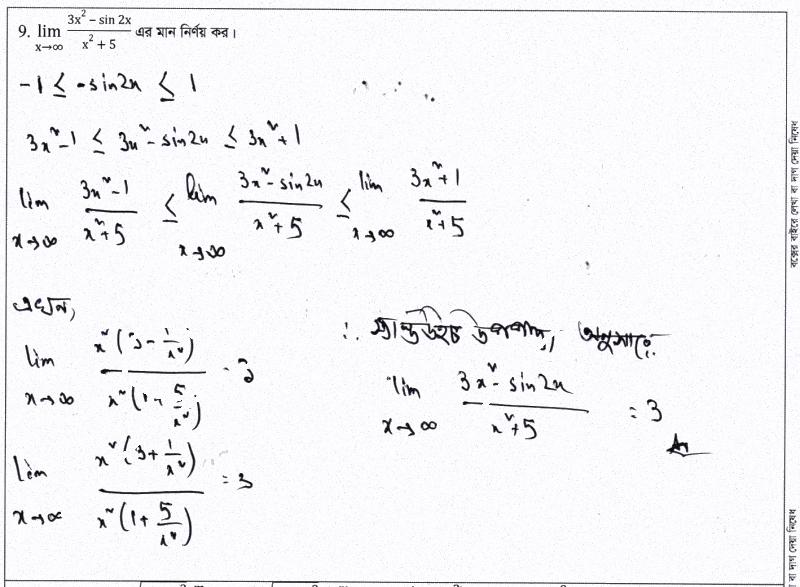 9. lim x→∞ (3x² − sin 2x)/(x² + 5) এর মান নির্ণয় কর।
-1 ≤ -sin2x ≤ 1
3x²-1 ≤ 3x²-sin2x ≤ 3x²+1
lim x→∞ (3x²-1)/(x²+5) ≤ lim x→∞ (3x²-sin2x)/(x²+5) ≤ lim x→∞ (3x²+1)/(x²+5)
এখন,
lim x→∞ x²(3 - 1/x²)/x²(1 + 5/x²) = 3
lim x→∞ x²(3 + 1/x²)/x²(1 + 5/x²) = 3
∴ স্যান্ডউইচ উপপাদ্য অনুসারে:
lim x→∞ (3x² - sin2x)/(x²+5) = 3
Ans
বক্সের বাইরে লেখা বা দাগ দেয়া নিষেধ
বা দাগ দেয়া নিষেধ